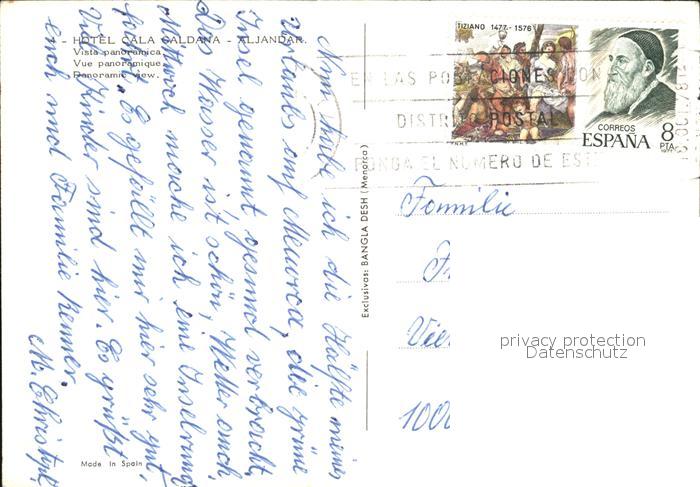 - HOTEL CALA GALDANA - ALJANDAR.
Vista panorámica.
Vue panoramique.
Panoramic view.
Nun habe ich die Hälfte meines
Urlaubs auf Menorca, die grüne
Insel genannt gesund verbracht.
Das Wasser ist schön, Wetter auch.
Mittwoch mache ich eine Inselrund
fahrt. Es gefällt mir hier sehr gut.
Kinder sind hier. Es grüßt
euch und Familie
M. Christine
Made in Spain
Exclusivas: BANGLA DESH (Menorca)
TIZIANO 1477 - 1576
CORREOS
ESPAÑA 8 PTA
EN LAS POBLACIONES CON
DISTRITO POSTAL
PONGA EL NUMERO DE ESTE
Familie
privacy protection
Datenschutz